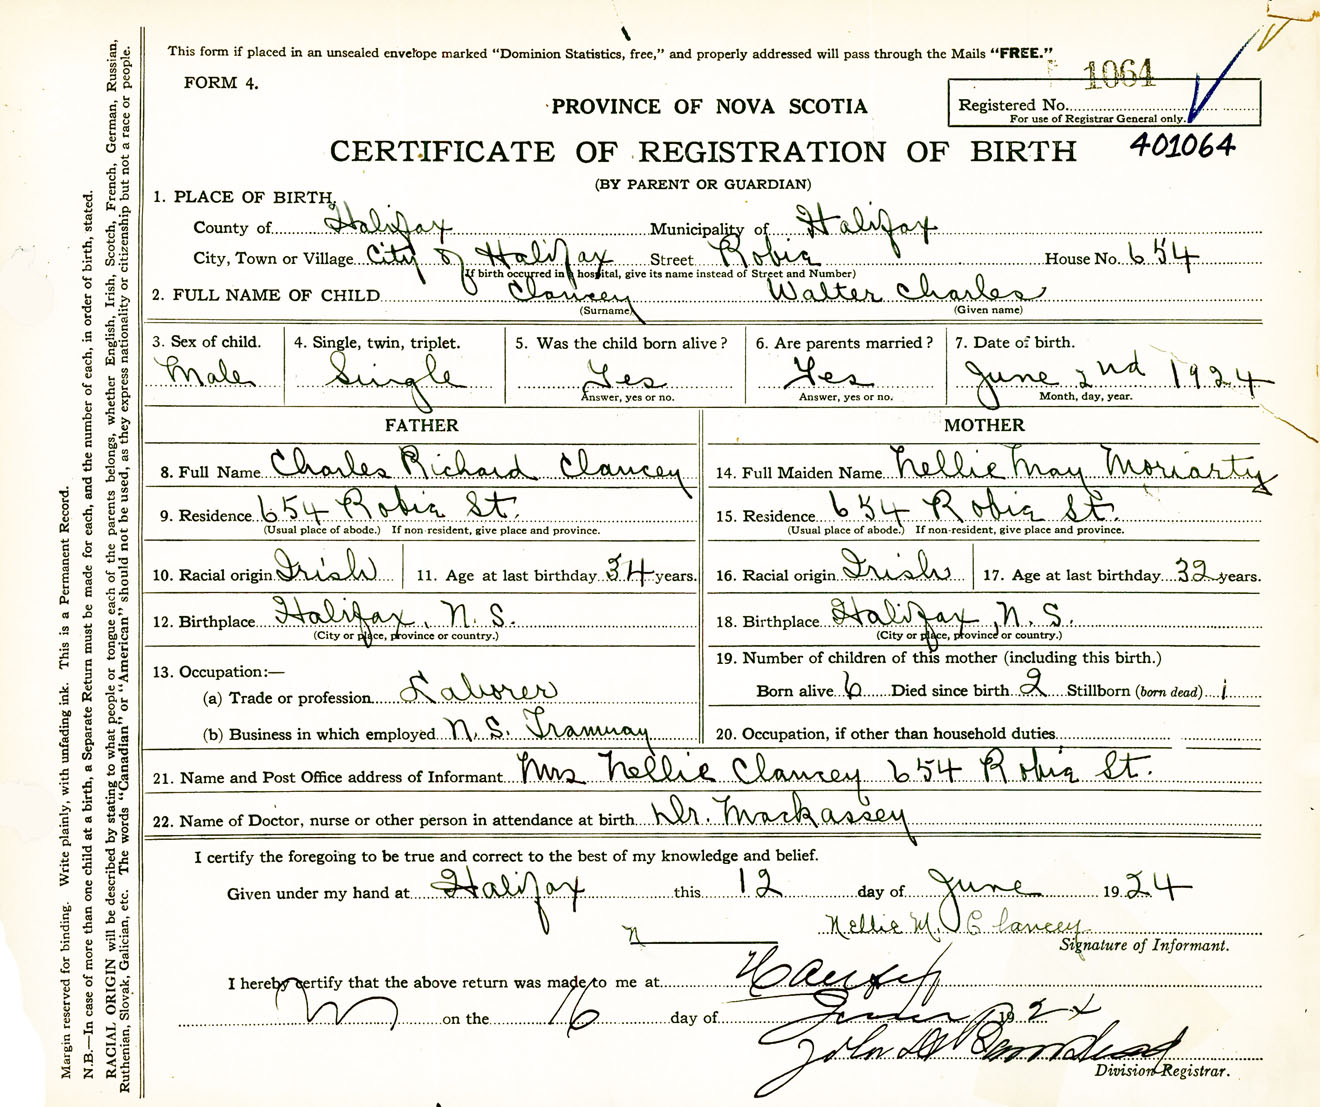 This form if placed in an unsealed envelope marked "Dominion Statistics, free," and properly addressed will pass through the Mails "FREE."
FORM 4.
1064
PROVINCE OF NOVA SCOTIA
Registered No.
For use of Registrar General only.
CERTIFICATE OF REGISTRATION OF BIRTH
401064
(BY PARENT OR GUARDIAN)
1. PLACE OF BIRTH,
County of Halifax Municipality of Halifax
City, Town or Village City of Halifax Street Robie House No. 654
(If birth occurred in a hospital, give its name instead of Street and Number)
2. FULL NAME OF CHILD Clancey Walter Charles
(Surname) (Given name)
3. Sex of child. 4. Single, twin, triplet. 5. Was the child born alive? 6. Are parents married? 7. Date of birth.
Male Single Yes Yes June 2nd 1924
Answer, yes or no. Answer, yes or no. Month, day, year.
FATHER MOTHER
8. Full Name Charles Richard Clancey 14. Full Maiden Name Nellie May Moriarty
9. Residence 654 Robie St. 15. Residence 654 Robie St.
(Usual place of abode.) If non-resident, give place and province. (Usual place of abode.) If non-resident, give place and province.
10. Racial origin Irish 11. Age at last birthday 34 years. 16. Racial origin Irish 17. Age at last birthday 32 years.
12. Birthplace Halifax, N.S. 18. Birthplace Halifax, N.S.
(City or place, province or country.) (City or place, province or country.)
13. Occupation:— 19. Number of children of this mother (including this birth.)
(a) Trade or profession Laborer Born alive 6 Died since birth 2 Stillborn (born dead) 1
(b) Business in which employed N.S. Tramway 20. Occupation, if other than household duties
21. Name and Post Office address of Informant Mrs Nellie Clancey 654 Robie St.
22. Name of Doctor, nurse or other person in attendance at birth Dr. Mackassey
I certify the foregoing to be true and correct to the best of my knowledge and belief.
Given under my hand at Halifax this 12 day of June 1924
Nellie M. Clancey
Signature of Informant.
I hereby certify that the above return was made to me at Halifax
on the 16 day of June 1924
John
Division Registrar.
Margin reserved for binding. Write plainly, with unfading ink. This is a Permanent Record.
N.B.—In case of more than one child at a birth, a Separate Return must be made for each, and the number of each, in order of birth, stated.
RACIAL ORIGIN will be described by stating to what people or tongue each of the parents belongs, whether English, Irish, Scotch, French, German, Russian,
Ruthenian, Slovak, Galician, etc. The words "Canadian" or "American" should not be used, as they express nationality or citizenship but not a race or people.